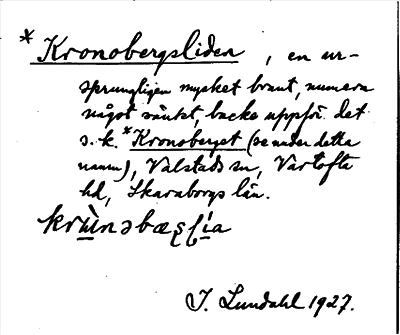 *Kronobergsliden, en ur-
sprungligen mycket brant, numera
något sänkt, backe uppför det
s.k. *Kronoberget (se under detta
namn), Valstads sn, Vartofta
hd, Skaraborgs län.
J. Lundahl 1927.